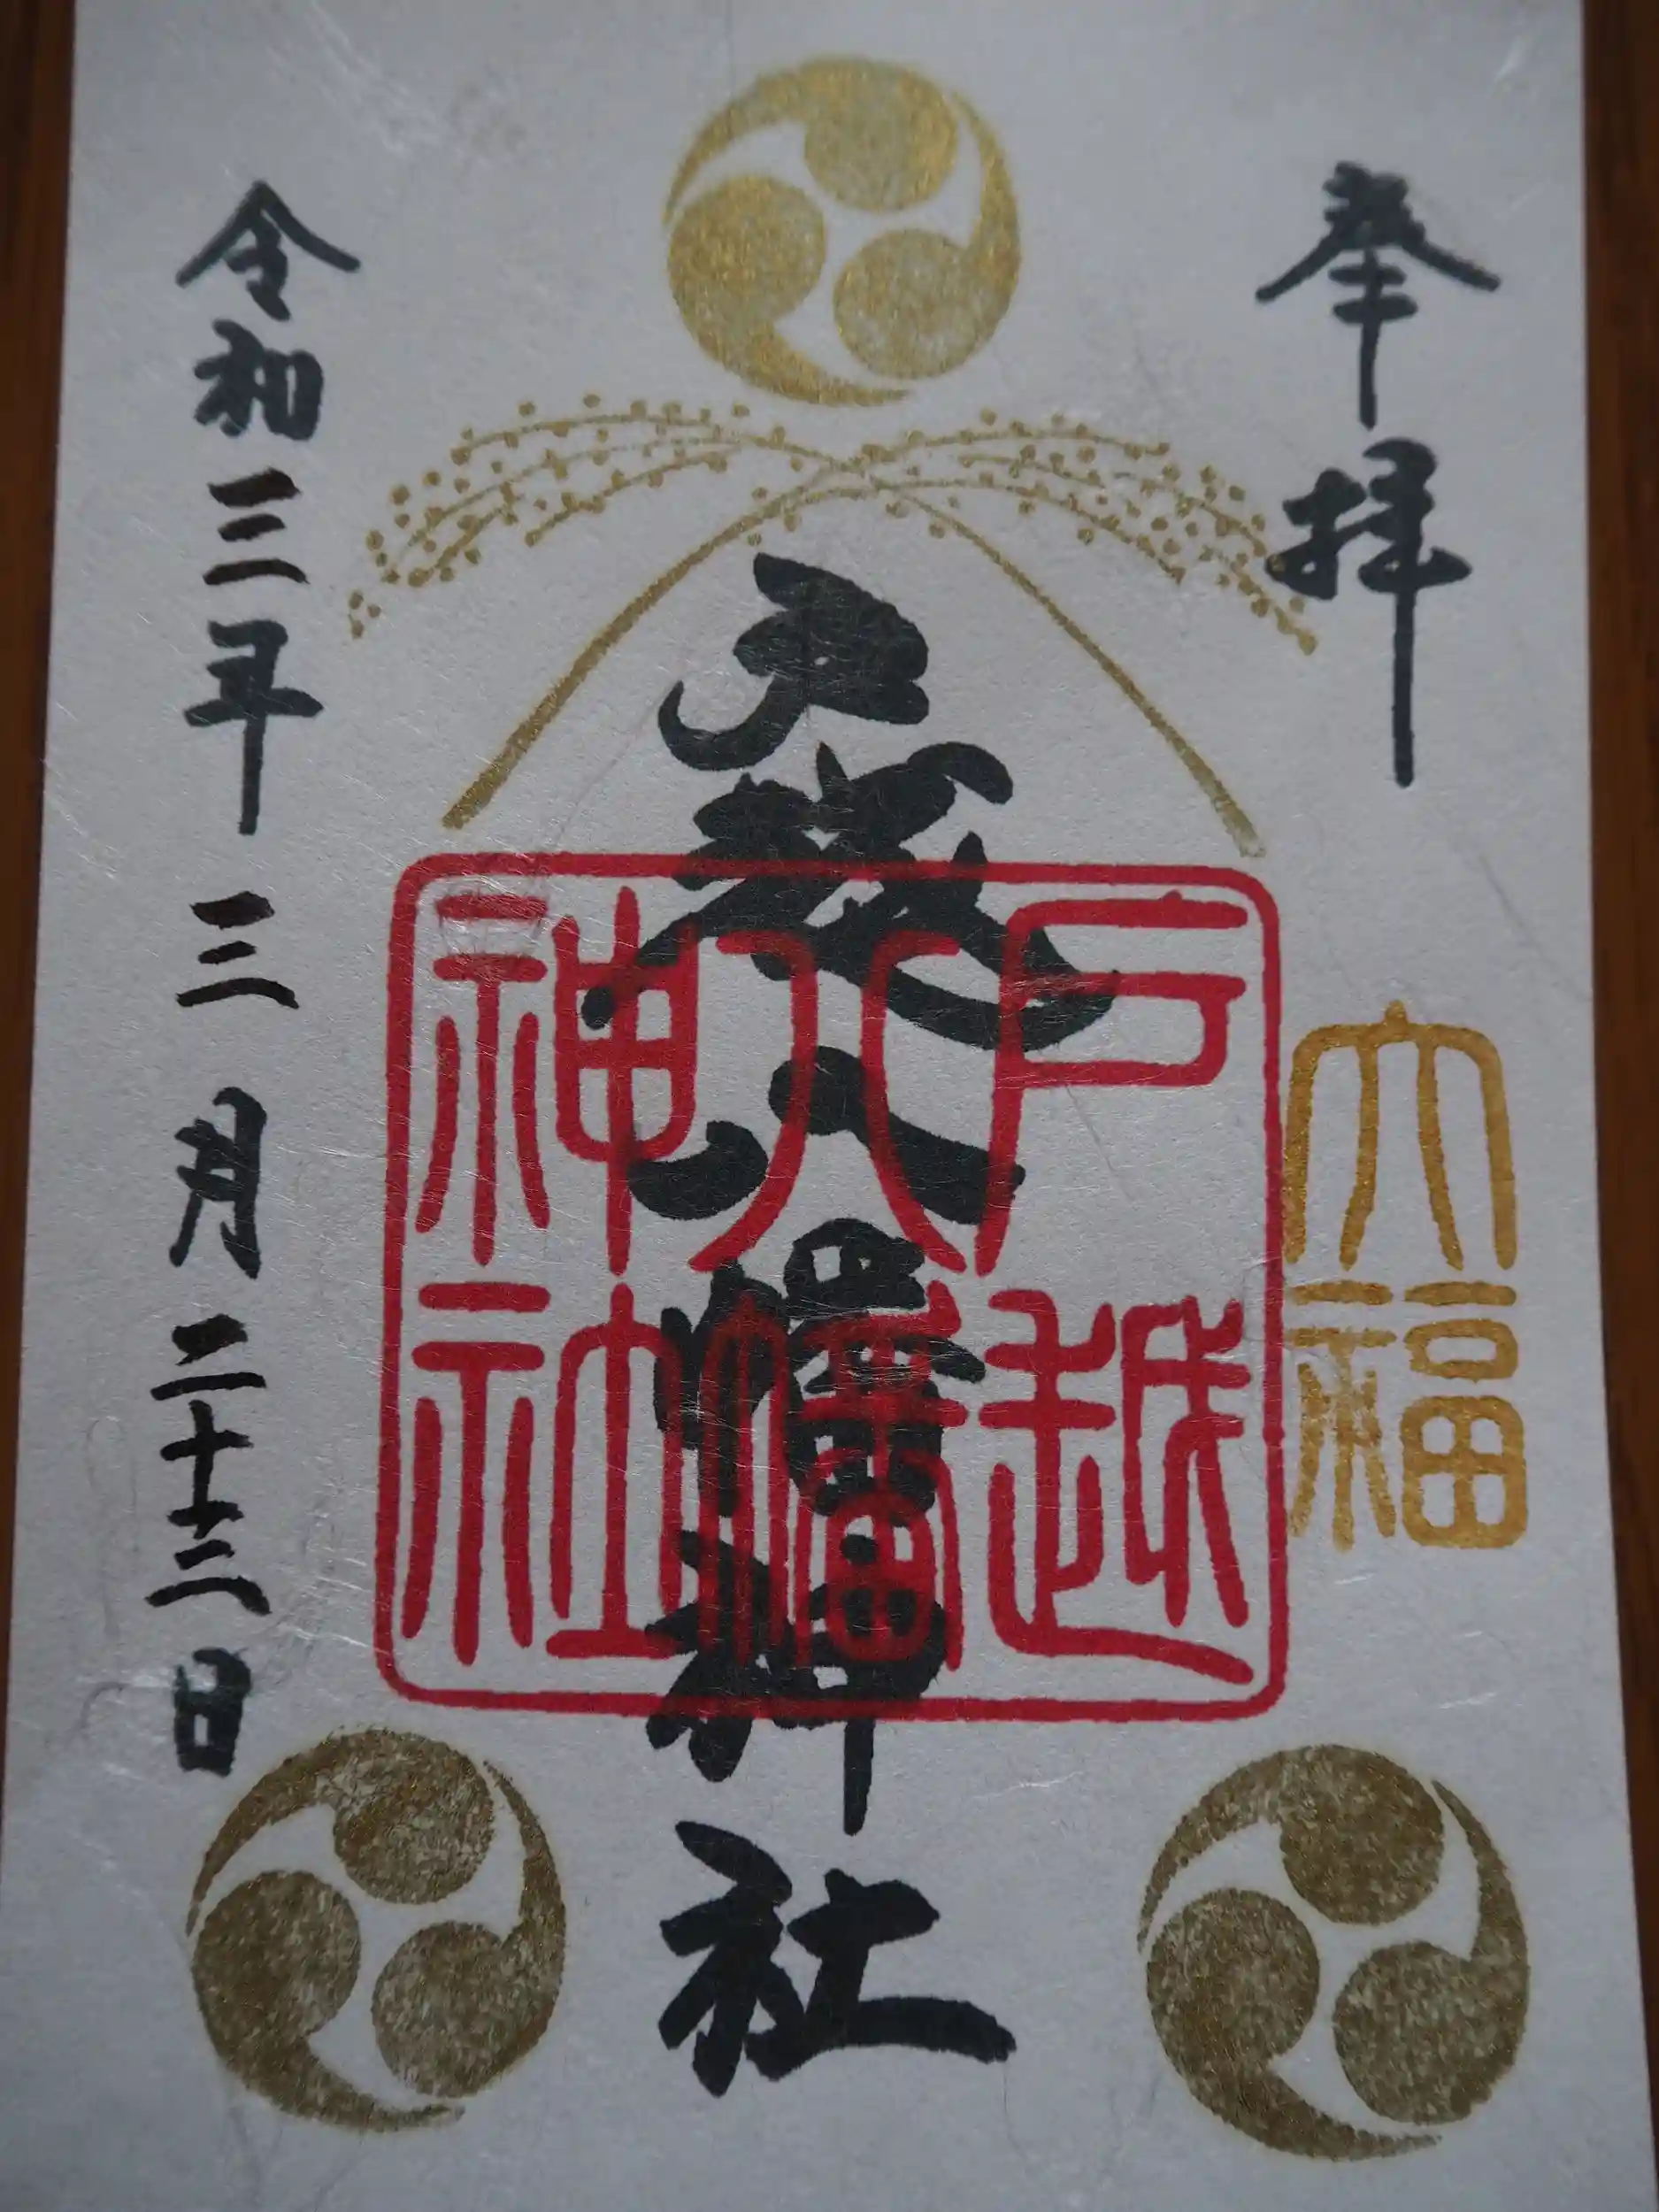 奉拝
大福
戸越八幡神社
戸越
八幡
神社
令和三年三月二十三日